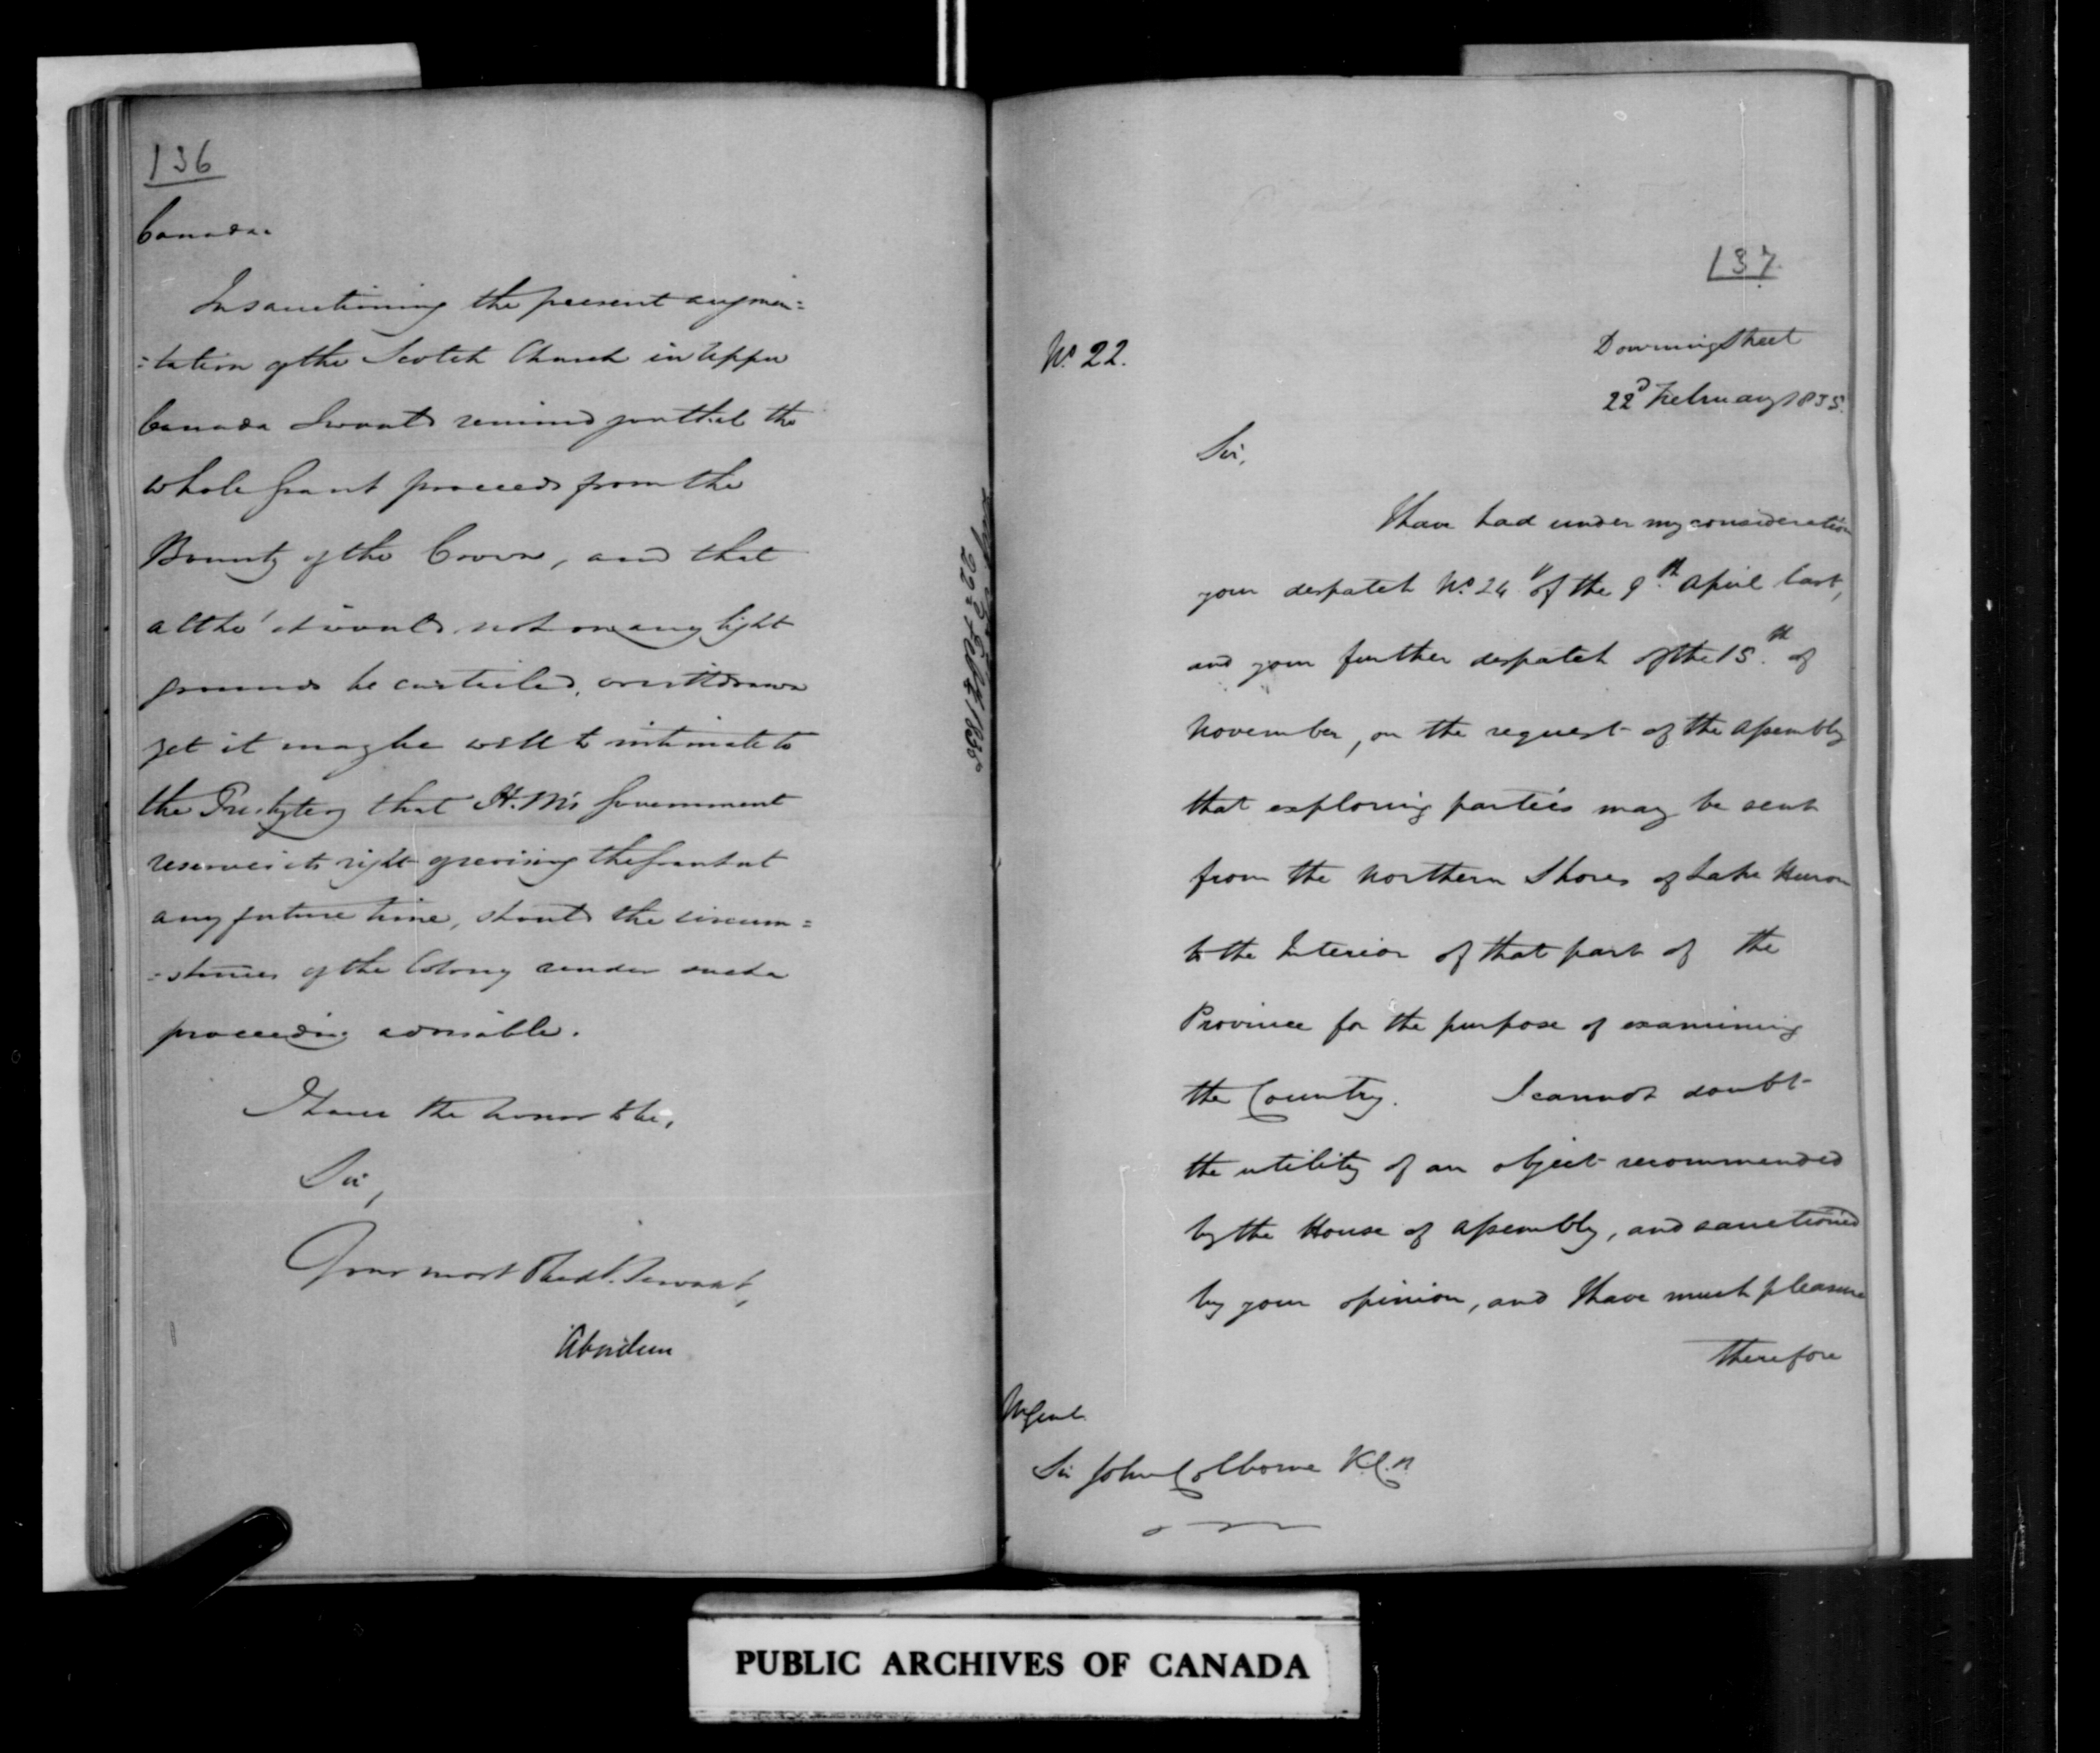 136
Canada.
In sanctioning the present augmen=
=tation of the Scotch Church in Upper
Canada I would remind you that the
whole grant proceeds from the
Bounty of the Crown, and that
altho' it would not on any light
grounds be curtailed, or withdrawn
yet it may be well to intimate to
the Presbytery that H. M's Government
reserves its right of revising the grant at
any future time, should the circum=
=stances of the Colony render such a
proceeding advisable.
I have the honor to be,
Sir,
Your most Obedt. Servant,
Aberdeen
137
No. 22.
Downing Street
22d February 1835.
Sir,
I have had under my consideration
your despatch No. 24 of the 9th. April last,
and your further despatch of the 15th. of
November, on the request of the Assembly
that exploring parties may be sent
from the Northern Shores of Lake Huron
to the Interior of that part of the
Province for the purpose of examining
the Country. I cannot doubt
the utility of an object recommended
by the House of Assembly, and sanctioned
by your opinion, and I have much pleasure
therefore
M. Genl.
Sir John Colborne K.C.B.
PUBLIC ARCHIVES OF CANADA